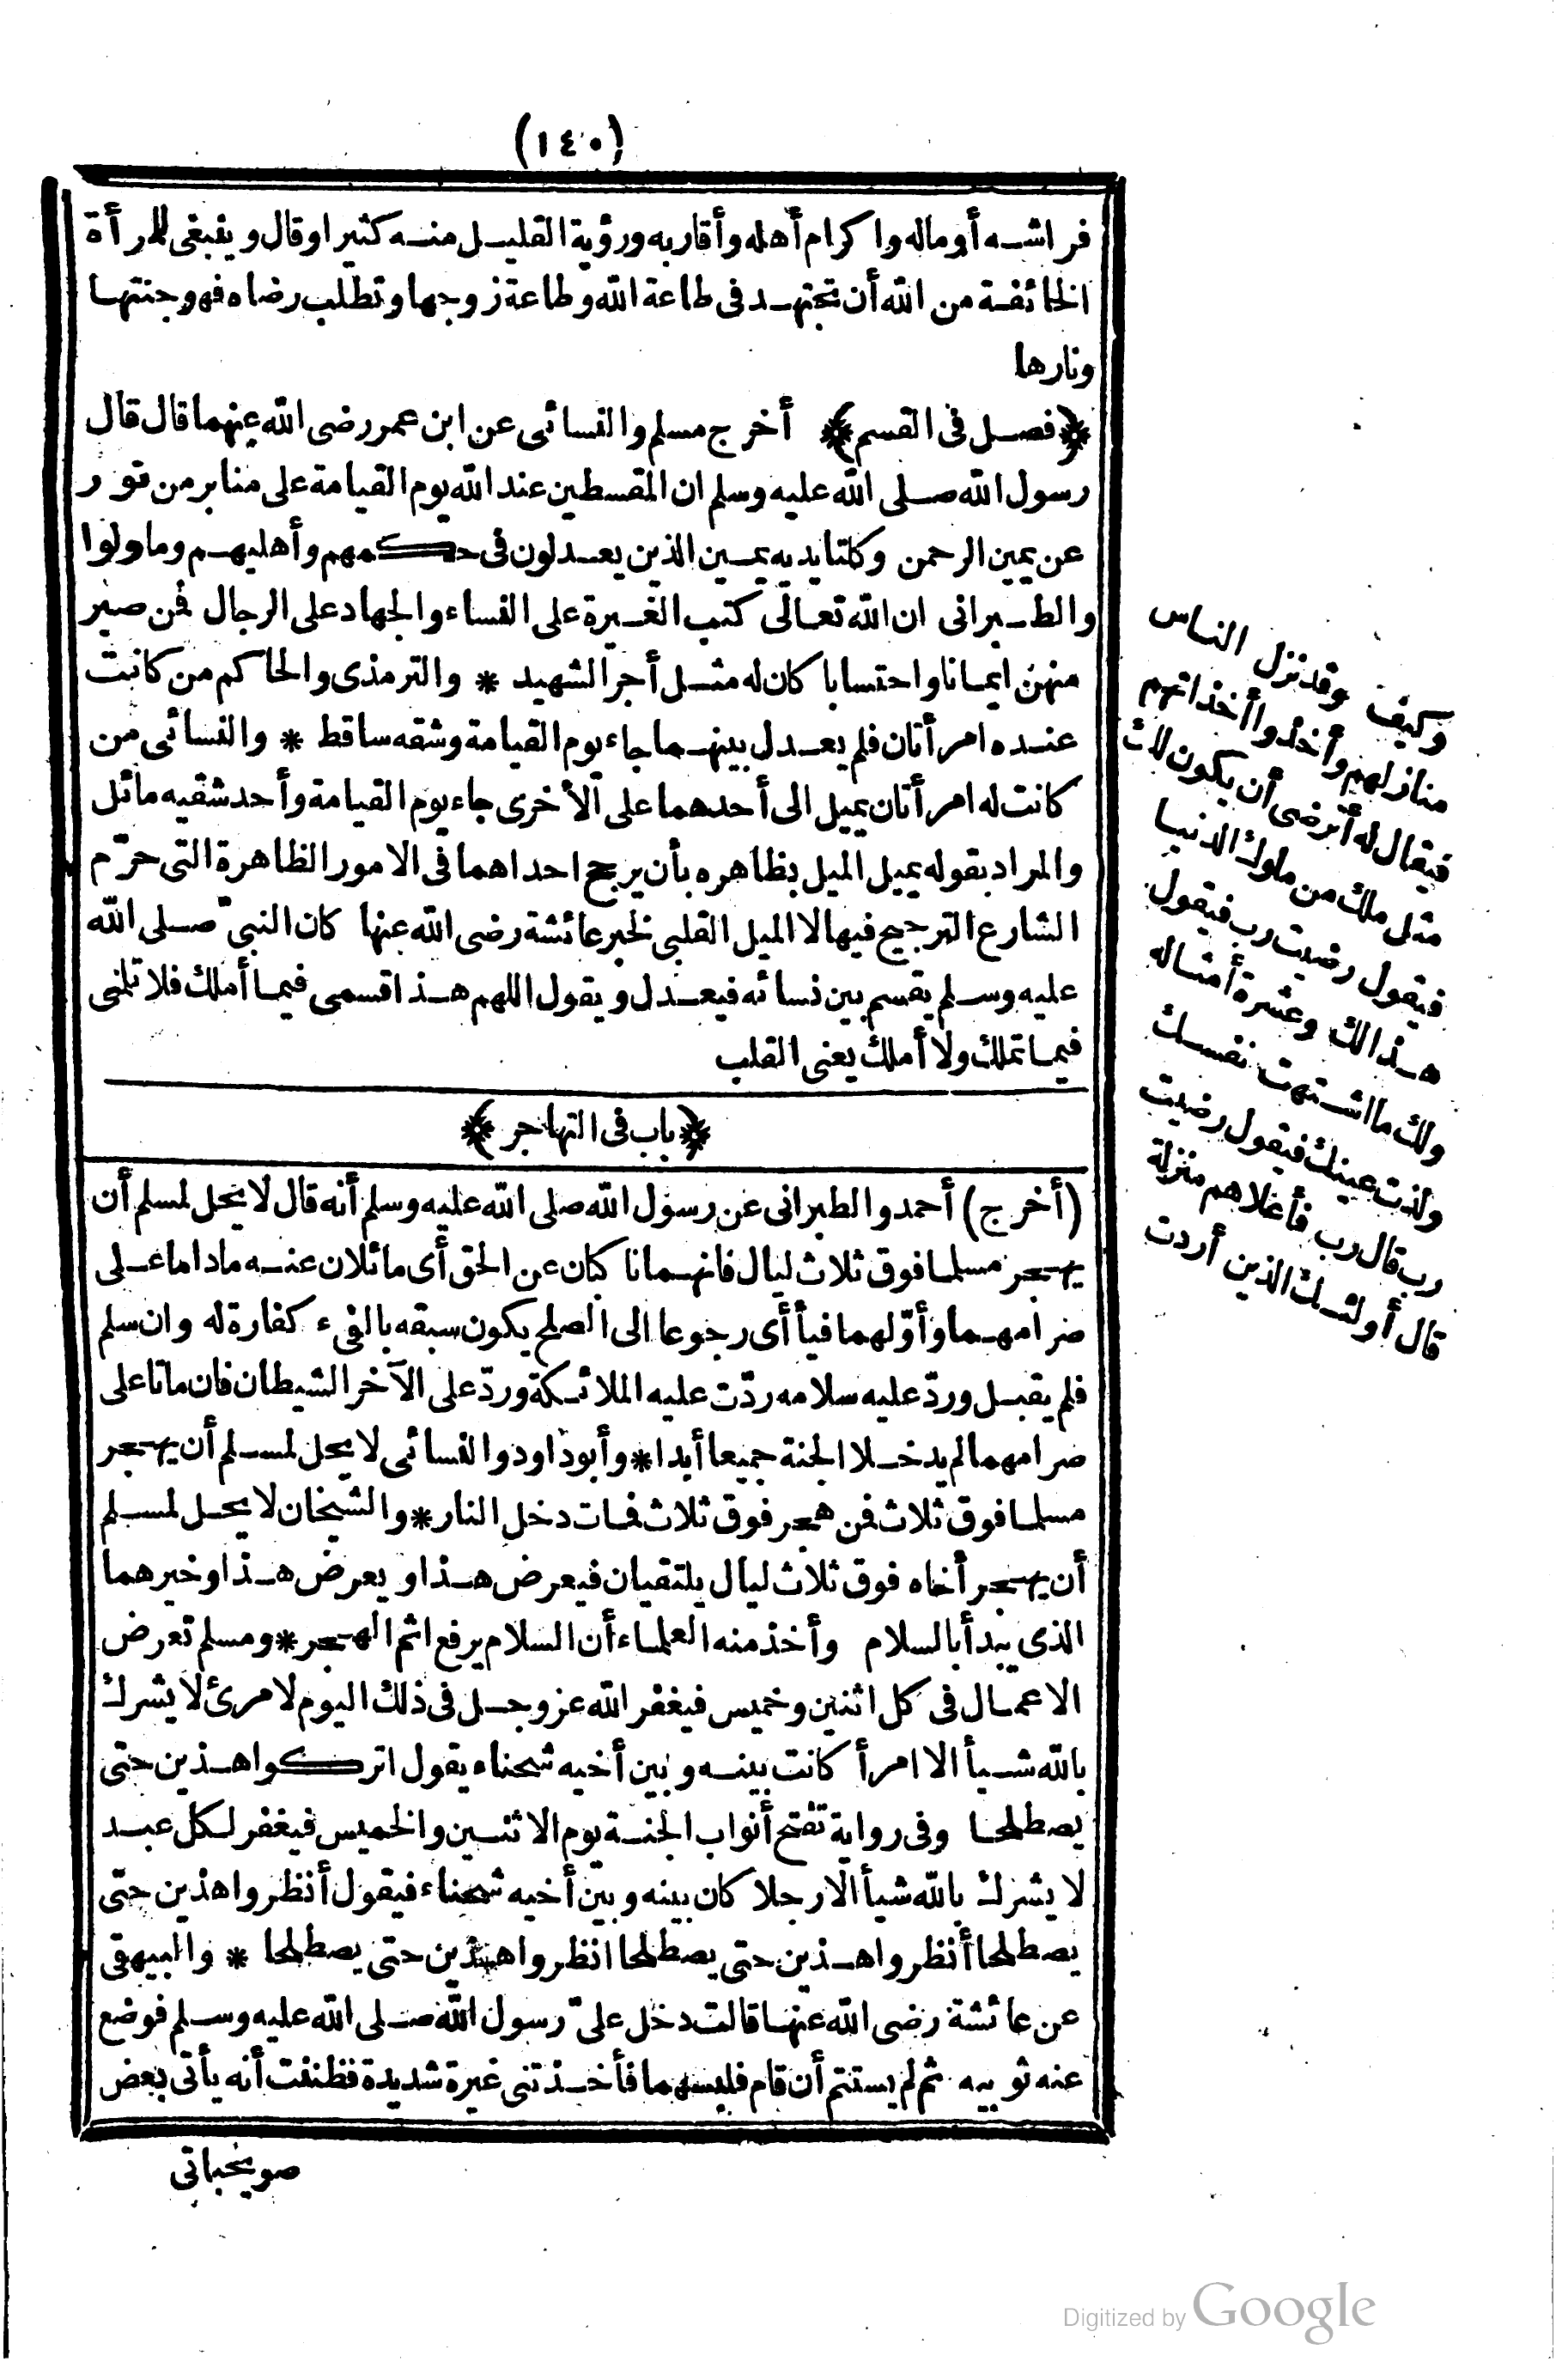 (١٤٠)
فراشه أو ماله واكرام أهله وأقاربه ورؤية القليل منه كثيرا وقال وينبغى للمرأة
الخائفة من الله أن تجتهد فى طاعة الله وطاعة زوجها وتطلب رضاه فهو جنتها
ونارها
﴿فصل فى القسم﴾ أخرج مسلم والنسائى عن ابن عمر رضى الله عنهما قال قال
رسول الله صلى الله عليه وسلم ان المقسطين عند الله يوم القيامة على منابر من نور
عن يمين الرحمن وكلتا يديه يمين الذين يعدلون فى حكمهم وأهليهم وما ولوا
والطبرانى ان الله تعالى كتب الغيرة على النساء والجهاد على الرجال فمن صبر
منهن ايمانا واحتسابا كان له مثل أجر الشهيد * والترمذى والحاكم من كانت
عنده امرأتان فلم يعدل بينهما جاء يوم القيامة وشقه ساقط * والنسائى من
كانت له امرأتان يميل الى أحدهما على الأخرى جاء يوم القيامة وأحد شقيه مائل
والمراد بقوله يميل الميل بظاهره بأن يرجح احداهما فى الامور الظاهرة التى حرّم
الشارع الترجيح فيها لا الميل القلبى لخبر عائشة رضى الله عنها كان النبىّ صلى الله
عليه وسلم يقسم بين نسائه فيعدل ويقول اللهم هذا قسمى فيما أملك فلا تلمنى
فيما تملك ولا أملك يعنى القلب
﴿باب فى التهاجر﴾
(أخرج) أحمد والطبرانى عن رسول الله صلى الله عليه وسلم أنه قال لا يحل لمسلم أن
يهجر مسلما فوق ثلاث ليال فانهما ناكبان عن الحق أى مائلان عنه ماداما على
ضرامهما وأوّلهما فيأ أى رجوعا الى الصلح يكون سبقه بالفىء كفارة له وان سلم
فلم يقبل وردّ عليه سلامه ردّت عليه الملائكة وردّ على الآخر الشيطان فان ماتا على
ضرامهما لم يدخلا الجنة جميعا أبدا * وأبوداود والنسائى لا يحل لمسلم أن يهجر
مسلما فوق ثلاث فمن هجر فوق ثلاث فمات دخل النار * والشيخان لا يحل لمسلم
أن يهجر أخاه فوق ثلاث ليال يلتقيان فيعرض هذا ويعرض هذا وخيرهما
الذى يبدأ بالسلام وأخذ منه العلماء أن السلام يرفع اثم الهجر * ومسلم تعرض
الاعمال فى كل اثنين وخميس فيغفر الله عز وجل فى ذلك اليوم لامرئ لا يشرك
بالله شيأ الا امرأ كانت بينه وبين أخيه شحناء يقول اتركوا هذين حتى
يصطلحا وفى رواية تفتح أبواب الجنة يوم الاثنين والخميس فيغفر لكل عبد
لا يشرك بالله شيأ الا رجلا كان بينه وبين أخيه شحناء فيقول أنظروا هذين حتى
يصطلحا أنظروا هذين حتى يصطلحا انظروا هذين حتى يصطلحا * والبيهقى
عن عائشة رضى الله عنها قالت دخل علىّ رسول الله صلى الله عليه وسلم فوضع
عنه ثوبيه ثم لم يستتم أن قام فلبسهما فأخذتنى غيرة شديدة فظننت أنه يأتى بعض
صويحباتى
وكيف وقد نزل الناس
منازلهم وأخذوا أخذاتهم
فيقال له أترضى أن يكون لك
مثل ملك من ملوك الدنيا
فيقول رضيت رب فيقول
هذا لك وعشرة أمثاله
ولك ما اشتهت نفسك
ولذت عينك فيقول رضيت
رب قال رب فأعلاهم منزلة
قال أولئك الذين أردت
Digitized by Google